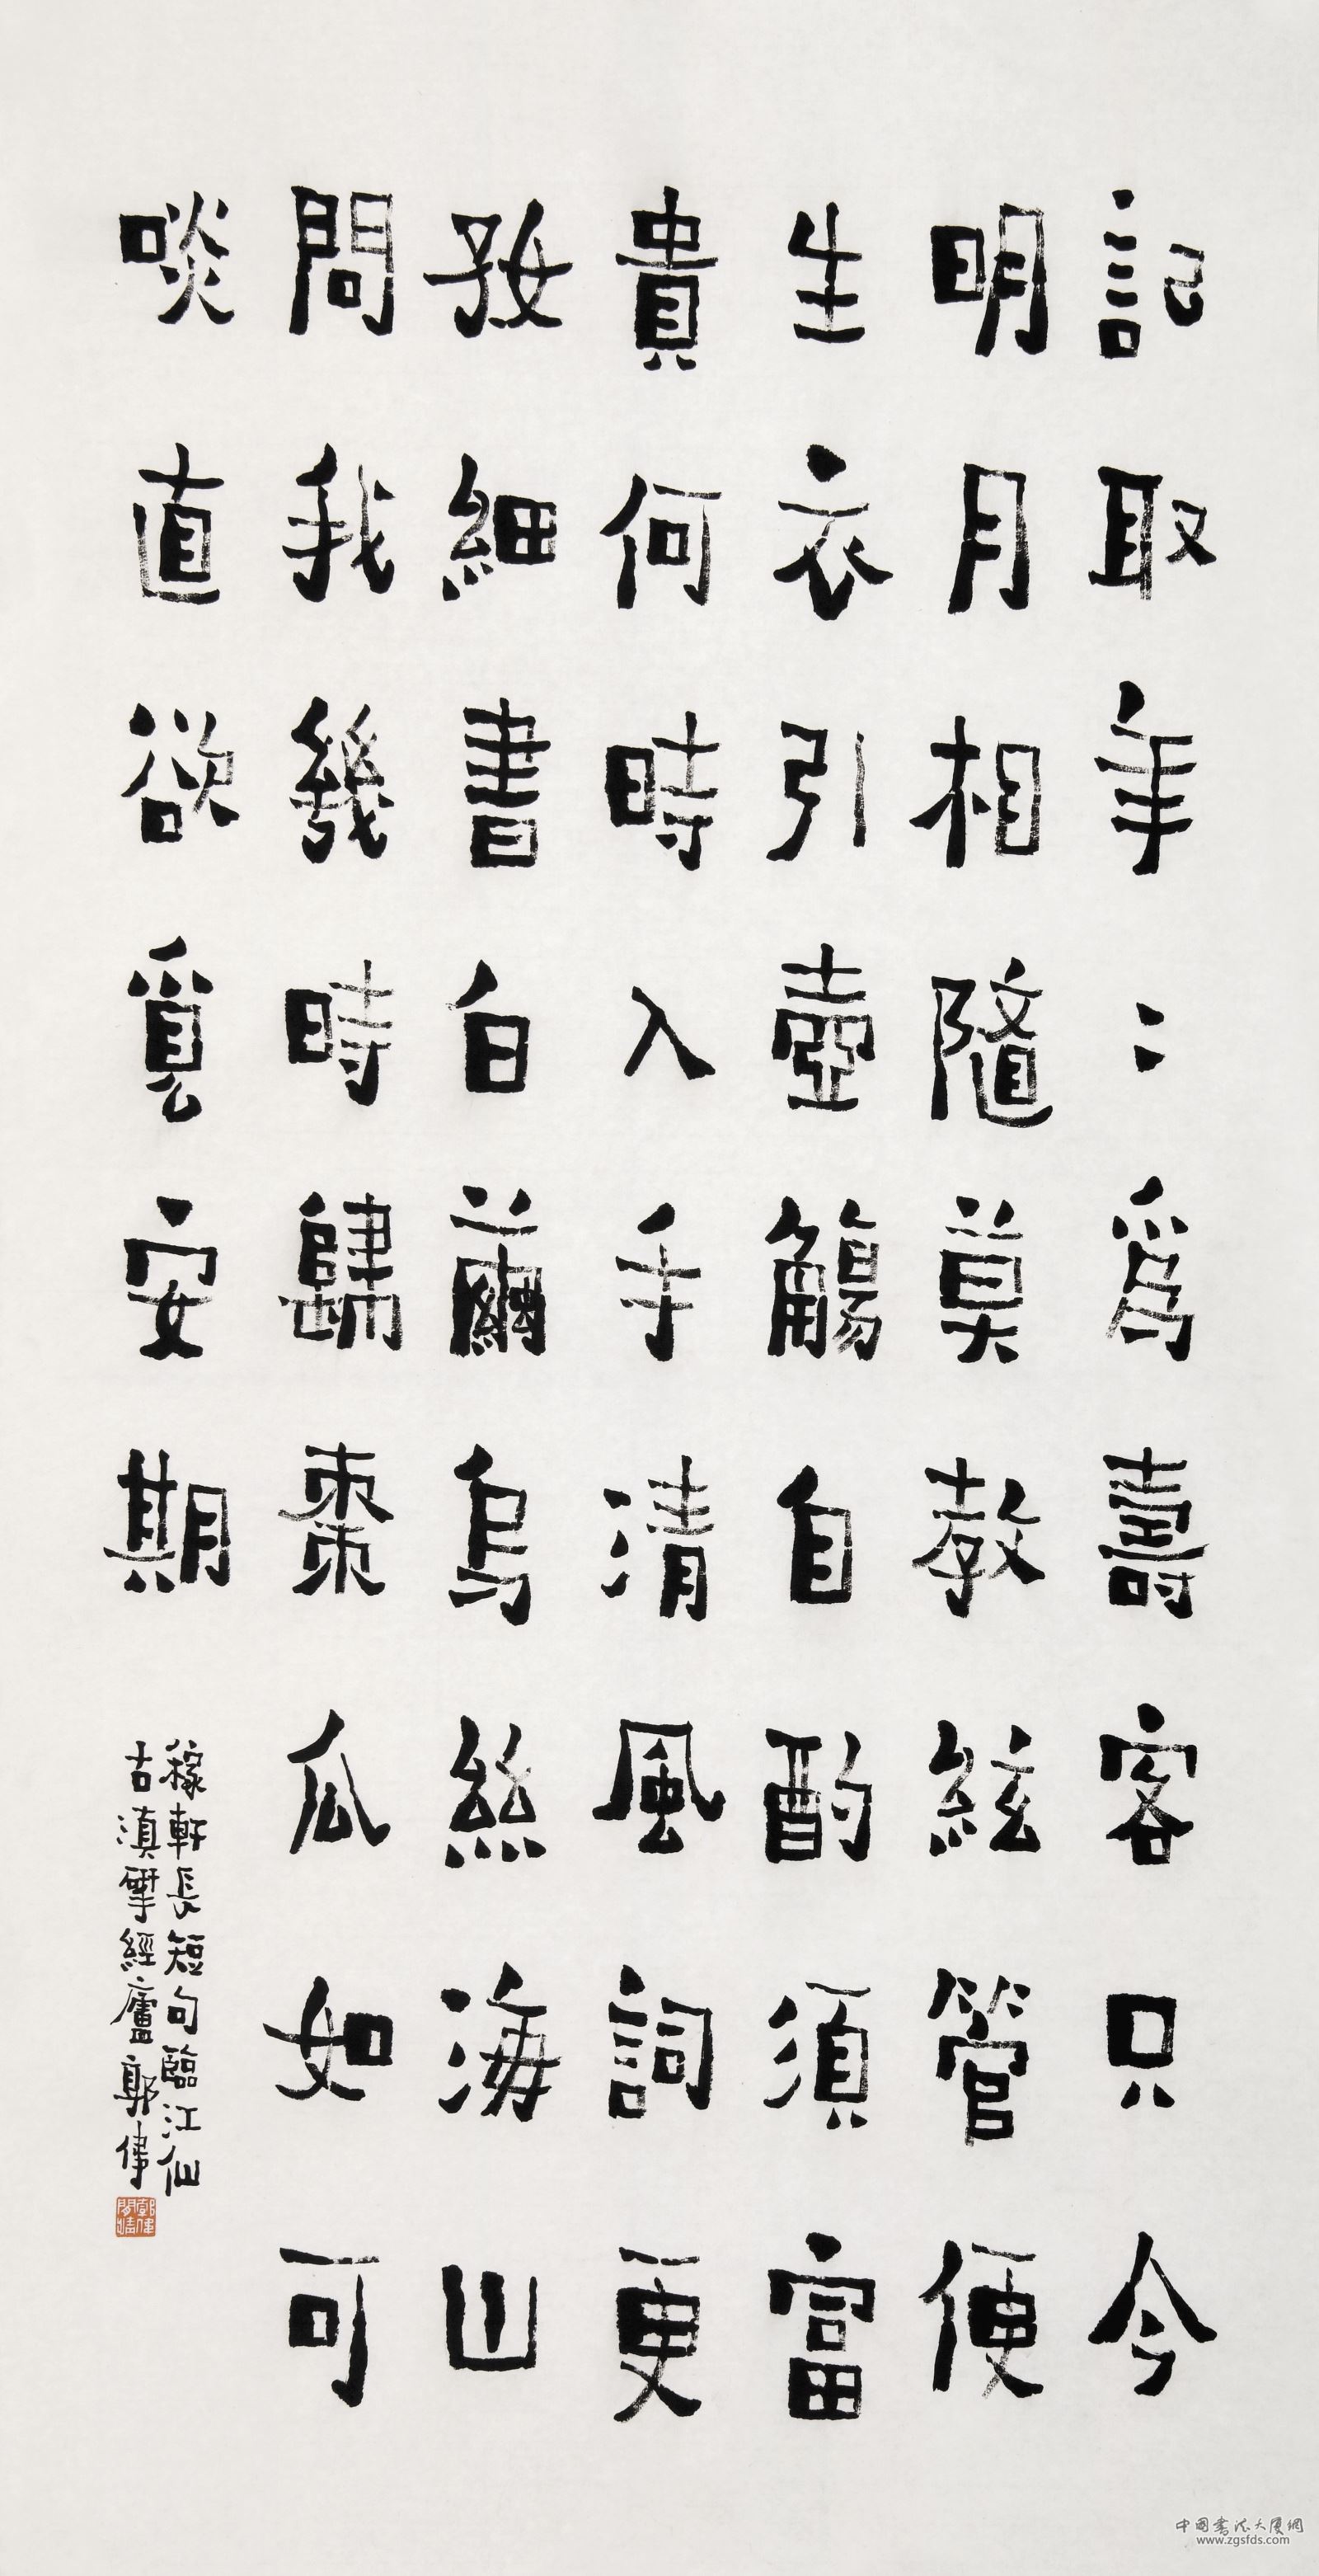 記取年〻爲壽客只今
明月相隨莫教絃管便
生衣引壺觴自酌須富
貴何時入手清風詞更
好細書白繭烏絲海山
問我幾時歸棗瓜如可
啖直欲覓安期
稼軒長短句臨江仙
古滇揅經廬郭偉
中國書法大厦網
www.zgsfds.com